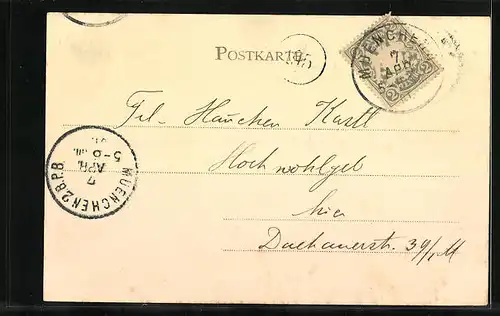 POSTKARTE
MUENCHEN
7
APR
2
2
Frl. Hänchen Kastl
Hochwohlgeb
hier
Dachauerstr. 39/I M
MUENCHEN 2 B.P.B.
7
APR.
5-6